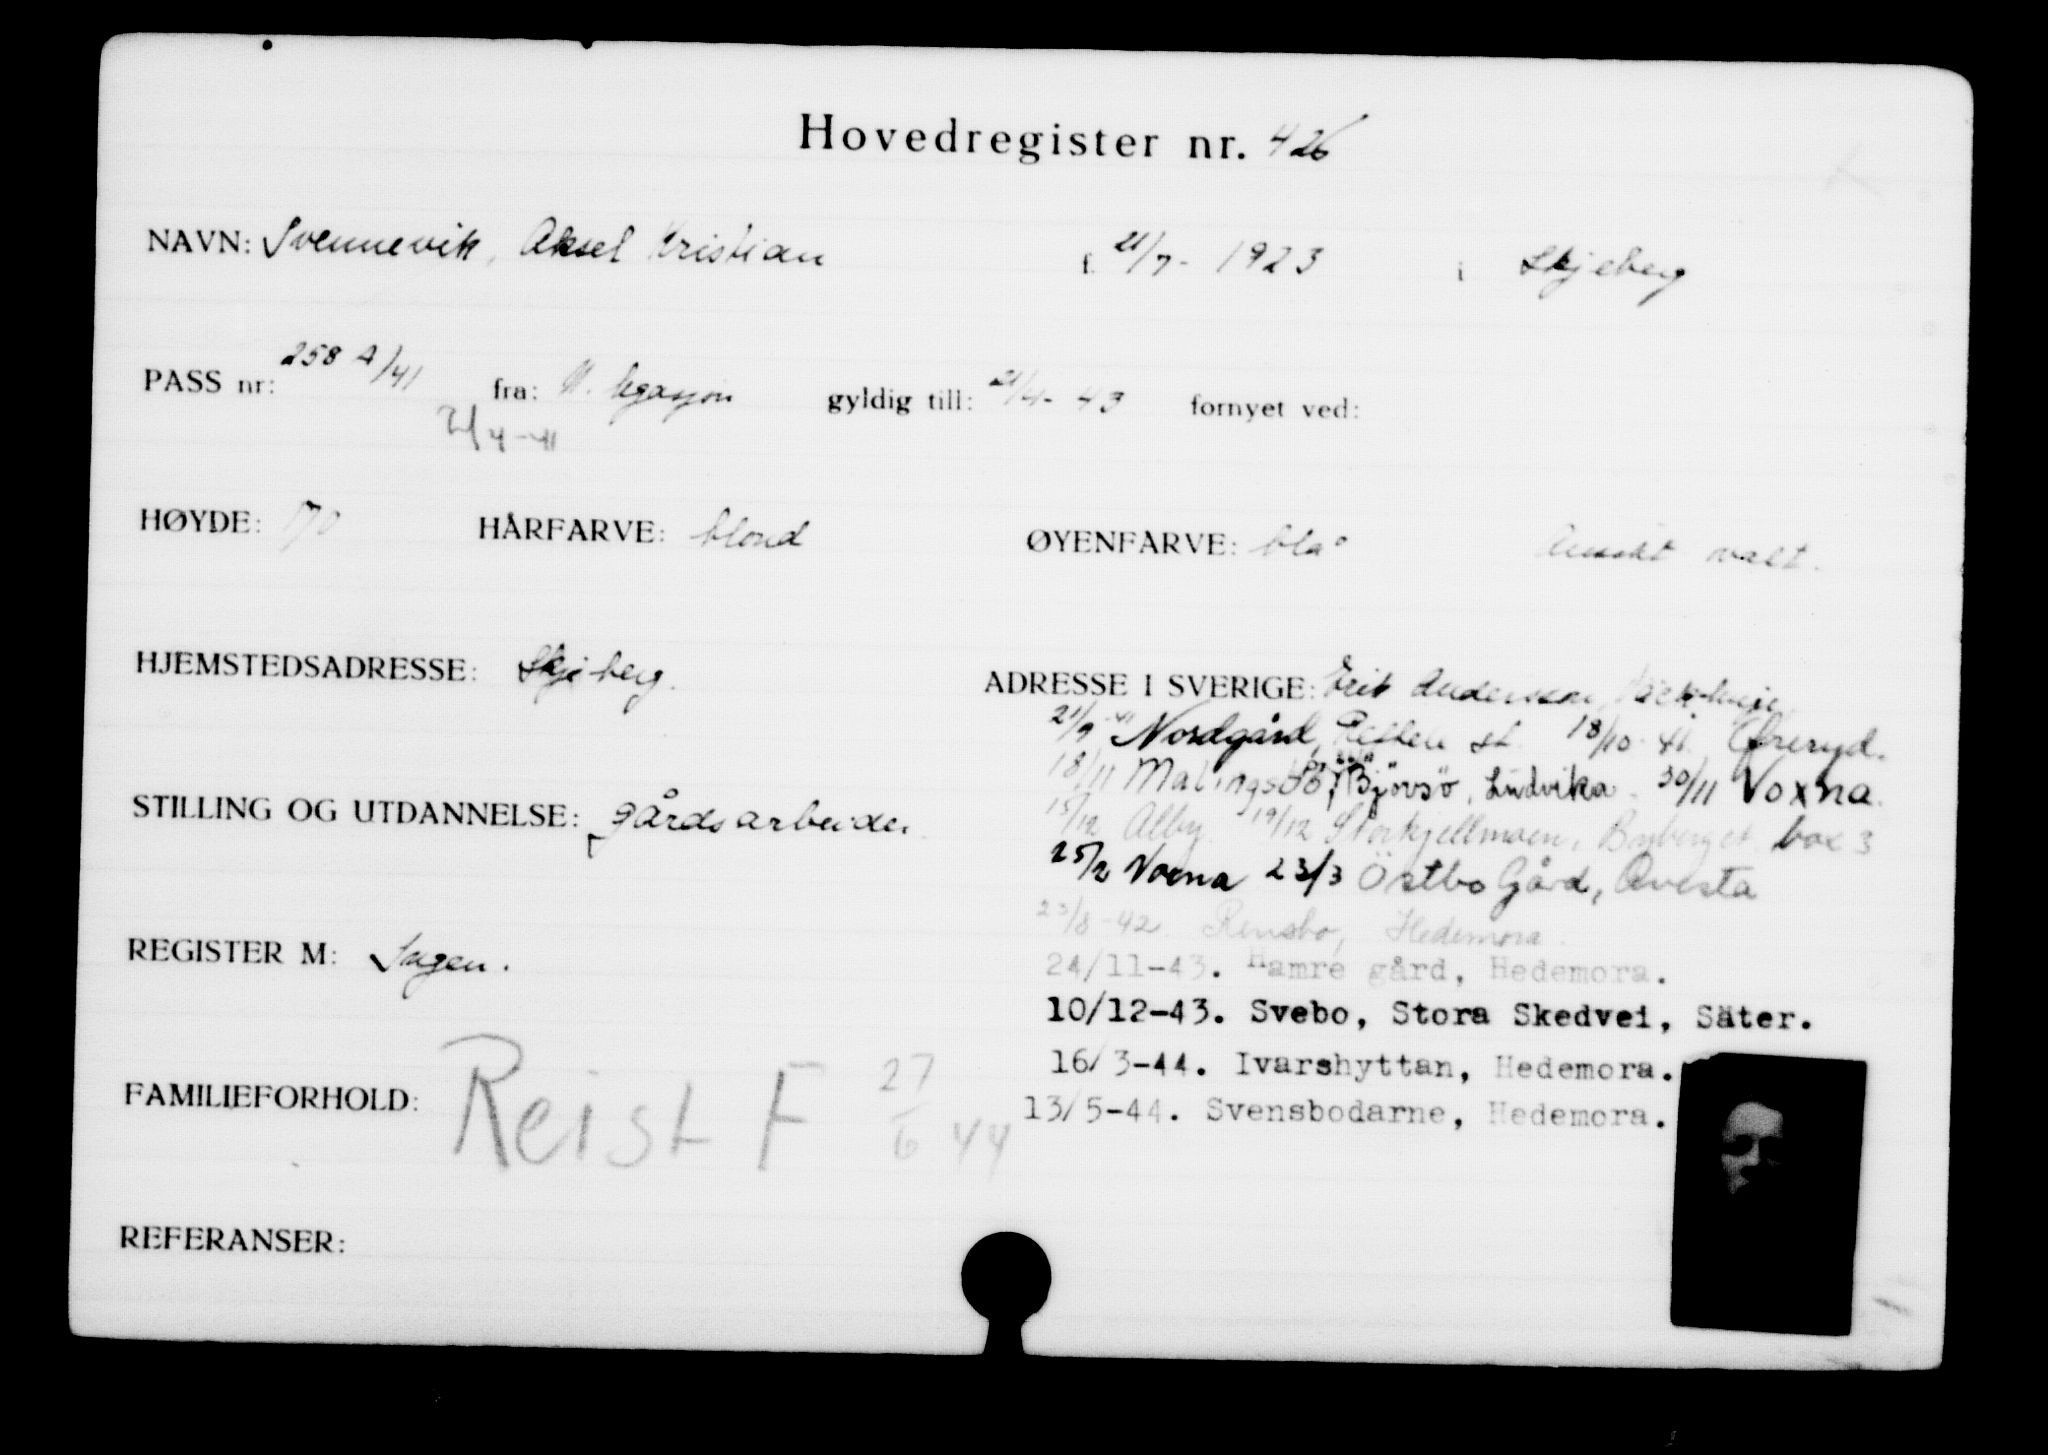 Hovedregister nr. 426
NAVN: Svennevik, Aksel Kristian f. 21/7- 1923 i Skjeberg
PASS nr: 258 A/41 fra: N. legasjon gyldig till: 21/4- 43 fornyet ved:
21/4-41
HØYDE: 170 HÅRFARVE: blond ØYENFARVE: blå Ansikt ovalt.
HJEMSTEDSADRESSE: Skjeberg. ADRESSE I SVERIGE: Erik Andersson,
21/9 -41 Nordgård, st. 18/10-41 Öreryd.
18/11 Malingsbo, Björsjö, Ludvika. 30/11 Voxna.
STILLING OG UTDANNELSE: gårdsarbeider
15/12 Alby 19/12 box 3
25/2 Voxna 23/3 Östbo Gård, Avesta
23/8-42. Rensbo, Hedemora.
REGISTER M: Sagen.
24/11-43. Hamre gård, Hedemora.
10/12-43. Svebo, Stora Skedvei, Säter.
16/3-44. Ivarshyttan, Hedemora.
FAMILIEFORHOLD: Reist F 27/6 44
13/5-44. Svensbodarne, Hedemora.
REFERANSER: